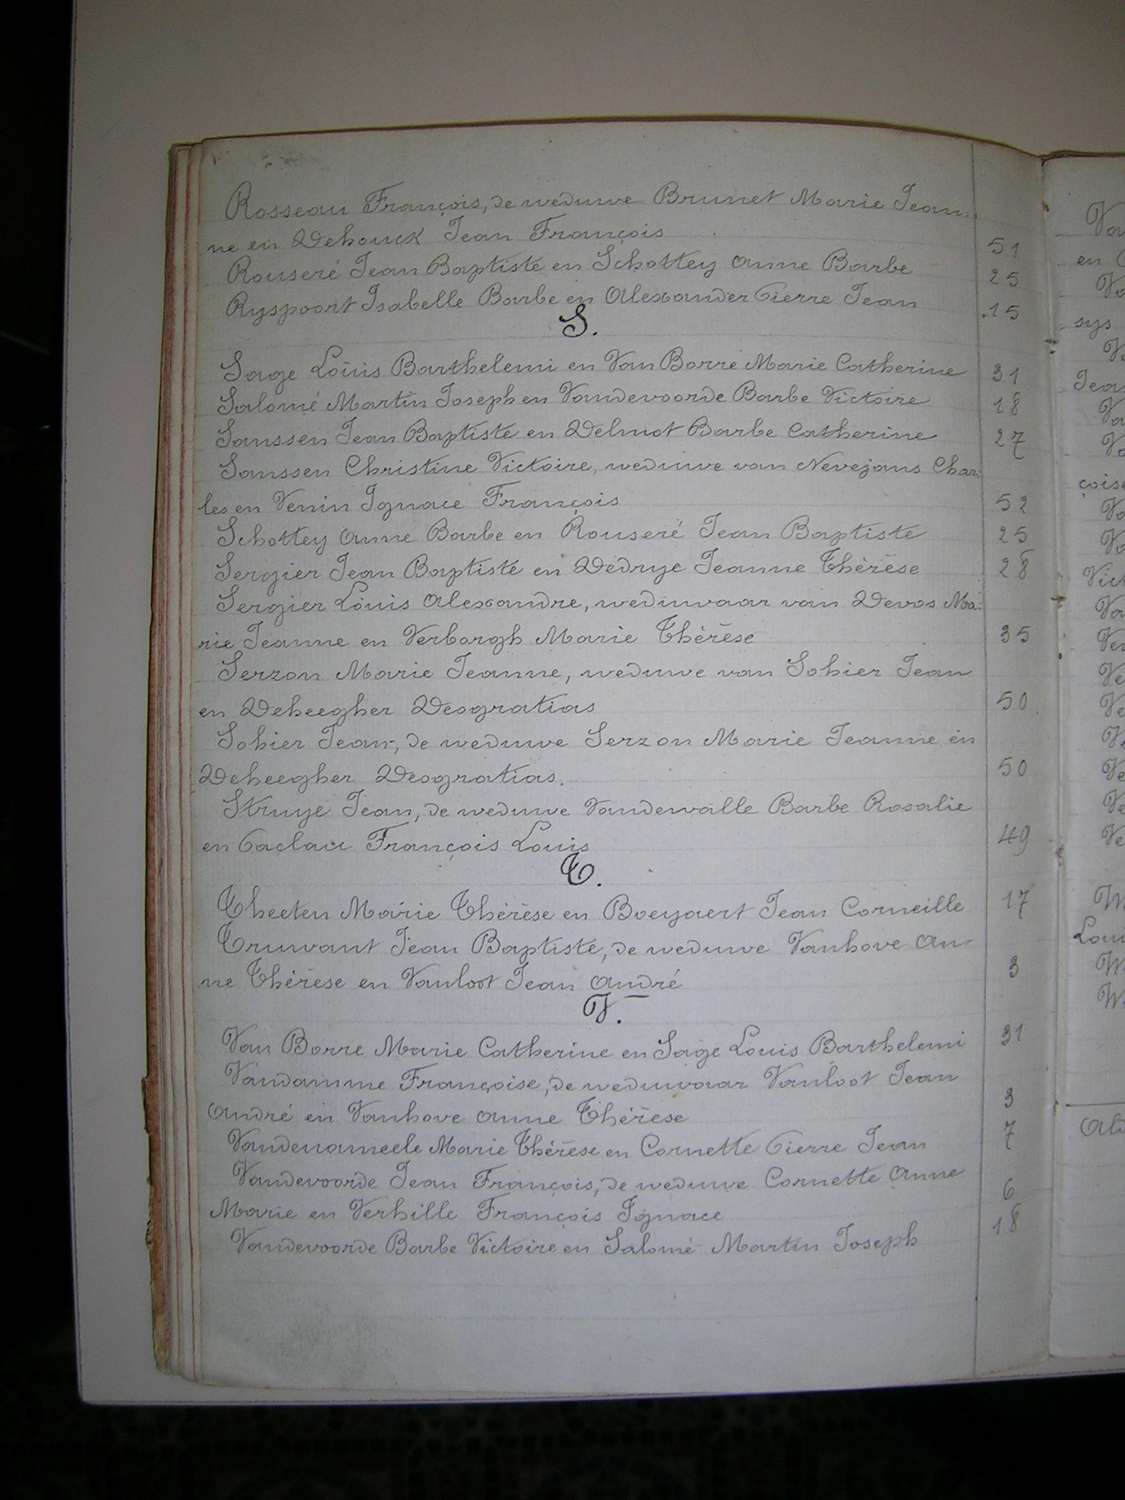 Rosseau François, de weduwe Brunet Marie Jean-
ne en Dehouck Jean François 51
Rouseré Jean Baptiste en Schottey Anne Barbe 25
Ryspoort Isabelle Barbe en Alexander Pierre Jean 15
S.
Sage Louis Barthelemi en Van Borre Marie Catherine 31
Salomé Martin Joseph en Vandevoorde Barbe Victoire 18
Sanssen Jean Baptiste en Delmot Barbe Catherine 27
Sanssen Christine Victoire, weduwe van Nevejans Char-
les en Venin Ignace François 52
Schottey Anne Barbe en Rouseré Jean Baptiste 25
Sergier Jean Baptiste en Dedrye Jeanne Thérèse 28
Sergier Louis Alexandre, weduwaar van Devos Ma-
rie Jeanne en Verborgh Marie Thérèse 35
Serzon Marie Jeanne, weduwe van Sohier Jean
en Deheegher Deogratias 50
Sohier Jean, de weduwe Serzon Marie Jeanne en
Deheegher Deogratias. 50
Struye Jean, de weduwe Vandewalle Barbe Rosalie
en François Louis 49
T.
Theeten Marie Thérèse en Boeyaert Jean Corneille 17
Truwant Jean Baptiste, de weduwe Vanhove An-
ne Thérèse en Vanloot Jean André 3
V.
Van Borre Marie Catherine en Sage Louis Barthelemi 31
Vandamme Françoise, de weduwaar Vanloot Jean
André en Vanhove Anne Thérèse 3
Vandenameele Marie Thérèse en Cornette Pierre Jean 7
Vandevoorde Jean François, de weduwe Cornette Anne
Marie en Verhille François Ignace 6
Vandevoorde Barbe Victoire en Salomé Martin Joseph 18